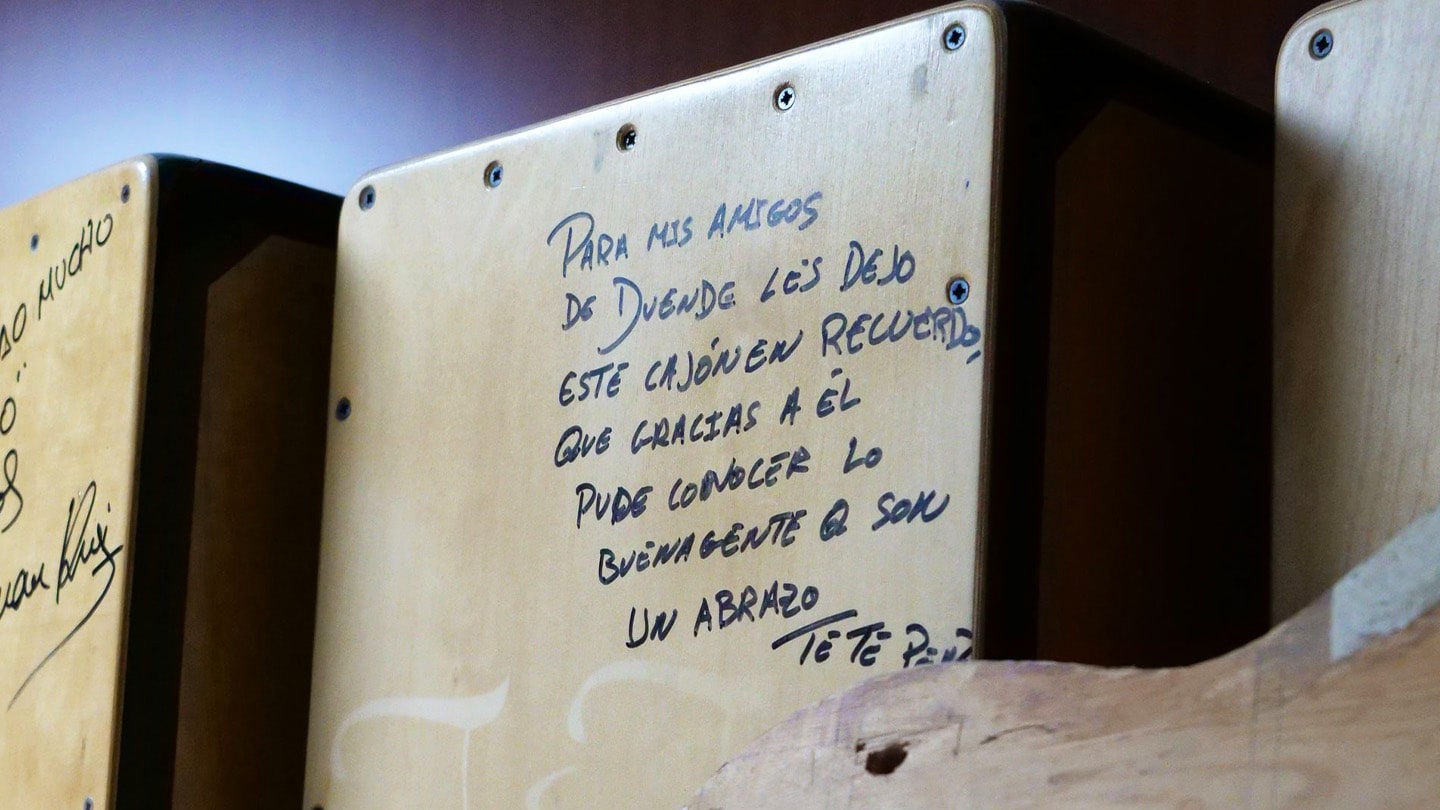 MUCHO
PARA MIS AMIGOS
DE DUENDE LES DEJO
ESTE CAJÓN EN RECUERDO,
QUE GRACIAS A ÉL
PUDE CONOCER LO
BUENAGENTE Q SON
UN ABRAZO
TETE